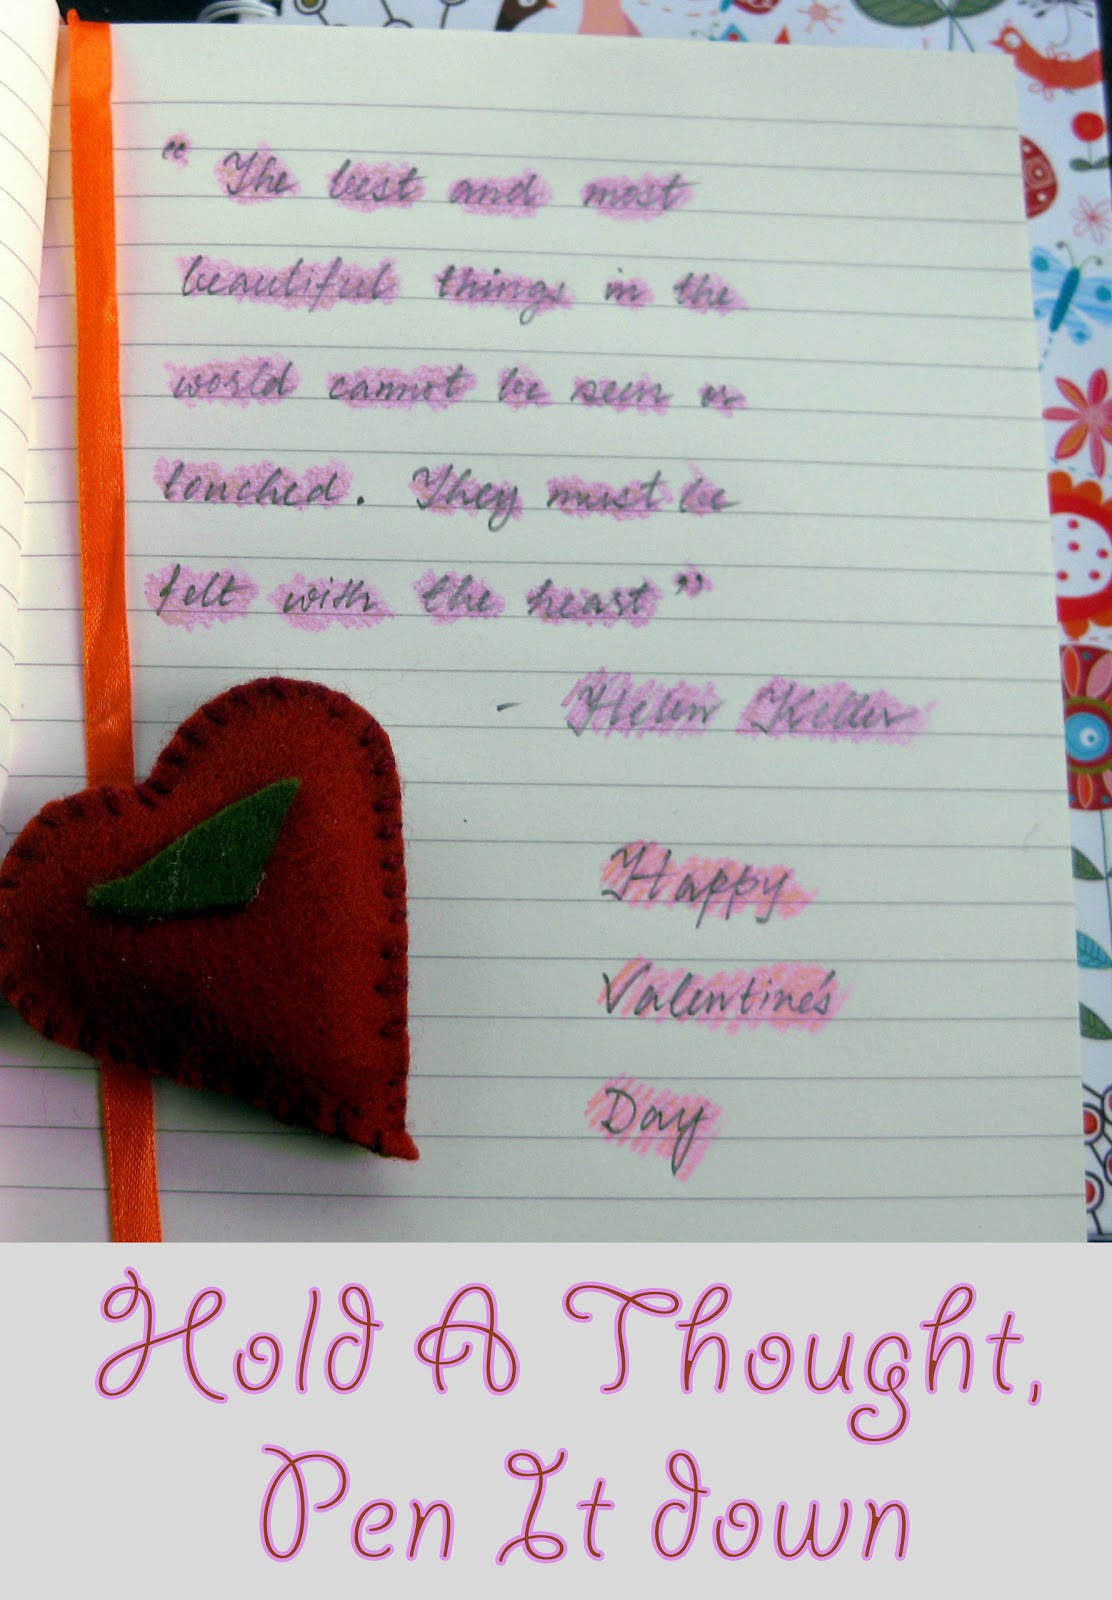 “ The best and most
beautiful things in the
world cannot be seen or
touched. They must be
felt with the heart ”
- Helen Keller
Happy
Valentine's
Day
Hold A Thought,
Pen It down